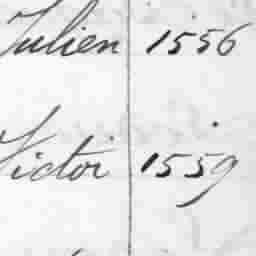 Julien 1556
Victor 1559